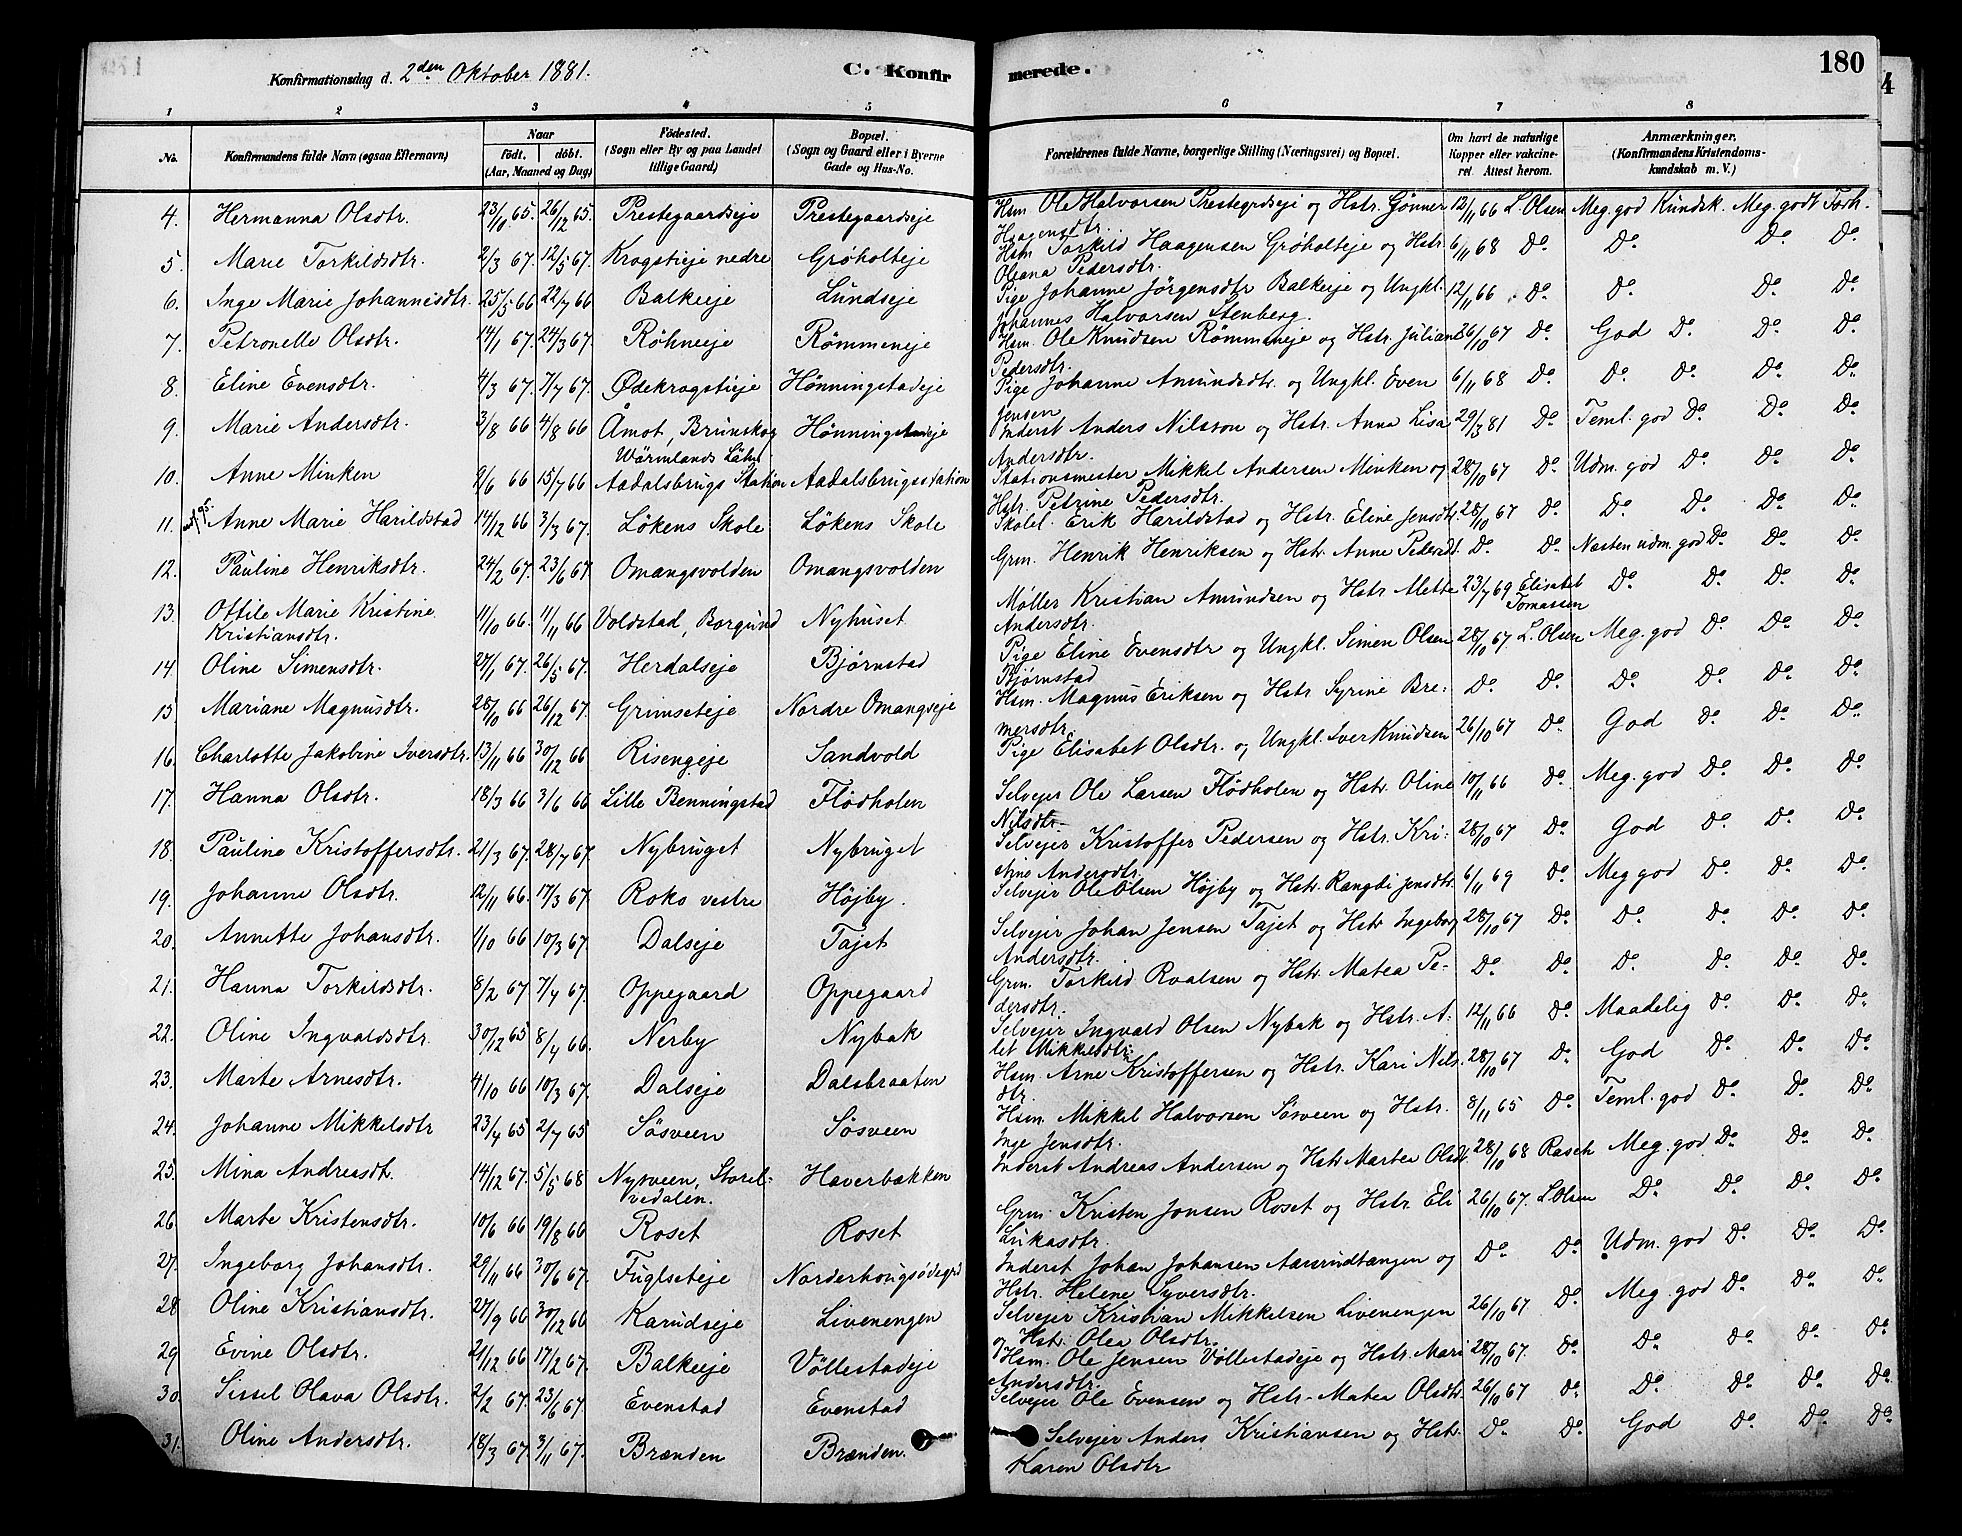 Konfirmationsdag d. 2den Oktober 1881.
C. Konfirmerede.
180
1 2 3 4 5 6 7 8
No.
Konfirmandens fulde Navn (ogsaa Efternavn)
Naar
födt. döbt.
(Aar, Maaned og Dag)
Födested.
(Sogn eller By og paa Landet
tillige Gaard)
Bopæl.
(Sogn og Gaard eller i Byerne
Gade og Hus-No.
Forældrenes fulde Navne, borgerlige Stilling (Næringsvei) og Bopæl.
Om havt de naturlige
Kopper eller vakcine-
ret Attest herom.
Anmærkninger.
(Konfirmandens Kristendoms-
kundskab m. V.)
4. Hermanna Olsdtr. 23/10 65. 26/12 65. Prestegaardseje Prestegaardseje Hsm Ole Halvorsen Prestegrdseje og Hstr. Gönner 12/11 66 L Olsen Meg. god Kundsk. Meg. godt Forh.
Haagensdtr.
5. Marie Torkildsdtr. 2/3 67. 12/5 67. Krogstieje nedre Gröholteje Hsm Torkild Haagensen Gröholteje og Hstr. 6/11 68 Do. Do. Do. Do.
Oleana Pedersdtr.
6. Inge Marie Johannisdtr. 25/5 66 22/7 66 Balkeeje Lundseje Pige Johanne Jörgensdtr Balkeeje og Ungkl. 12/11 66 Do. Do. Do. Do.
Johannes Halvorsen Stenberg.
7. Petronelle Olsdtr. 14/1 67. 24/3 67. Röhneeje Römmeneje Hsm. Ole Knudsen Römmeneje og Hstr. Juliane 26/10 67 Do. God Do. Do. Do.
Pedersdtr.
8. Eline Evensdtr. 4/3 67. 7/7 67. Ødekrogstieje Hönningstadeje Pige Johanne Amundsdtr. og Ungkl. Even 6/11 68 Do. Do. Do. Do. Do.
Jensen
9. Marie Andersdtr. 3/8 66 4/8 66 Åmot, Brunskog Hönningstadeje Inderst Anders Nilsson og Hstr. Anna Lisa 29/3 81 Do. Teml. god Do. Do. Do.
Wärmlands Lähn Andersdtr.
10. Anne Minken 9/6 66 15/7 66 Aadalsbrugs Station Aadalsbrugsstation Stationsmester Mikkel Andersen Minken og 28/10 67 Do. Udm. god Do. Do. Do.
Hstr. Petrine Pedersdtr.
11. Anne Marie Harildstad 14/12 66 3/3 67. Lökens Skole Lökens Skole Skolel. Erik Harildstad og Hstr. Eline Jensdtr. 28/10 67 Do. Do. Do. Do. Do.
12. Pauline Henriksdtr. 24/2 67. 23/6 67 Omangsvolden Omangsvolden Grm. Henrik Henriksen og Hstr. Anne Pedersdt. Do. Do. Næsten udm. god Do. Do. Do.
13. Ottile Marie Kristine 11/10 66. 11/11 66 Voldstad, Borgund Nyhuset Møller Kristian Amundsen og Hstr Mette 23/7 69 Elisabet Do. Do. Do. Do.
Kristiansdtr. Andersdtr. Tomassen
14. Oline Simensdtr. 27/1 67. 26/5 67. Herdalseje Bjørnstad Pige Eline Evensdtr og Ungkl. Simen Olsen 28/10 67. L. Olsen Meg. god Do. Do. Do.
Bjørnstad
15 Mariane Magnusdtr. 28/10 66 26/12 67. Grimseteje Nordre Omangseje Hsm. Magnus Eriksen og Hstr Syrine Bre- Do. Do. Do. Do. Do. Do.
mersdtr.
16. Charlotte Jakobine Iversdtr. 13/11 66 30/12 66 Risengeje Sandvold Pige Elisabet Olsdtr. og Ungkl. Iver Knudsen 26/10 67 Do. God Do. Do. Do.
17. Hanna Olsdtr. 18/3 66 3/6 66 Lille Benningstad Flödholen Selvejer Ole Larsen Flödholen og Hstr. Oline 10/11 66 Do. Meg. god Do. Do. Do.
Nilsdtr.
18. Pauline Kristoffersdtr. 21/3 67. 28/7 67. Nybruget Nybruget Selvejer Kristoffer Pedersen og Hstr. Kri- 28/10 67 Do. God Do. Do. Do.
stine Andersdtr.
19. Johanne Olsdtr. 12/11 66. 17/3 67. Roko vestre Höjby. Selvejer Ole Olsen Höjby og Hstr. Rangdi Jensdtr. 6/11 69 Do. Meg god Do. Do. Do.
20. Annette Johansdtr. 1/10 66 10/3 67. Dalseje Tajet Selvejer Johan Jensen Tajet og Hstr Ingeborg 28/10 67 Do. Do. Do. Do. Do.
Andersdtr.
21. Hanna Torkildsdtr. 8/2 67 7/4 67. Oppegaard Oppegaard Grm. Torkild Roalsen og Hstr. Matea Pe- Do. Do. Do. Do. Do. Do.
dersdtr.
22. Oline Ingvaldsdtr. 30/12 65 8/4 66. Nerby Nybak Selvejer Ingvald Olsen Nybak og Hstr. A- 12/11 66 Do. Maadelig Do. Do. Do.
let Mikkelsdtr.
23. Marte Arnesdtr. 4/10 66 10/3 67. Dalseje Dalsbraaten Hsm. Arne Kristoffersen og Hstr. Kari Nils- 28/10 67 Do. God Do. Do. Do.
dtr.
24. Johanne Mikkelsdtr 23/4 65 2/7 65 Sösveen Sösveen Hsm. Mikkel Halvorsen Sösveen og Hstr. 8/11 65 Do. Teml. god Do. Do. Do.
Inge Jensdtr.
25. Mina Andreasdt. 14/12 67. 5/5 68 Nysveen, Storel- Haverbakken Inderst Andreas Andersen og Hstr Martea Olsdt. 28/10 68 Rasch Meg. god Do. Do. Do.
vedalen.
26. Marte Kristensdtr. 10/6 66 19/8 66 Roset Roset Grm. Kristen Jonsen Roset og Hstr. Eli 26/10 67. L. Olsen Do. Do. Do. Do.
Lukasdtr.
27. Ingeborg Johansdtr. 29/11 66 30/6 67. Fuglseteje Norderhougsödegrd Inderst Johan Johansen Aasrudtangen og Do. Do. Udm. god Do. Do. Do.
Hstr. Helene Syversdtr.
28 Oline Kristiansdtr. 27/9 66 30/12 66 Karudseje Livenengen Selvejer Kristian Mikkelsen Livenengen 26/10 67. Do. Meg. god Do. Do. Do.
og Hstr. Olea Olsdtr.
29 Evine Olsdtr. 21/12 66 17/2 67. Balkeeje Völlestadeje Hsm. Ole Jensen Völlestadeje og Hstr. Mari 28/10 67. Do. Do. Do. Do. Do.
Andersdtr.
30. Sissel Olava Olsdtr. 2/2 67. 23/6 67. Evenstad Evenstad Selvejer Ole Evensen og Hstr. Matea Olsdtr. 26/10 67 Do. Do. Do. Do. Do.
31. Oline Andersdtr. 18/3 67. 3/11 67. Brænden Brænden. Selvejer Anders Kristiansen og Hstr. Do. Do. God Do. Do. Do.
Karen Olsdtr